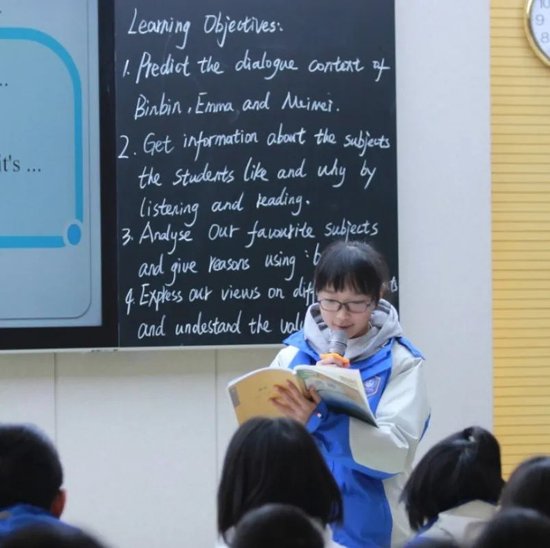 it's ...
Learning Objectives:
1. Predict the dialogue content of
Binbin, Emma and Meimei.
2. Get information about the subjects
the students like and why by
listening and reading.
3. Analyse our favourite subjects
and give reasons using :
4. Express our views on
and undestand the
10
9
8